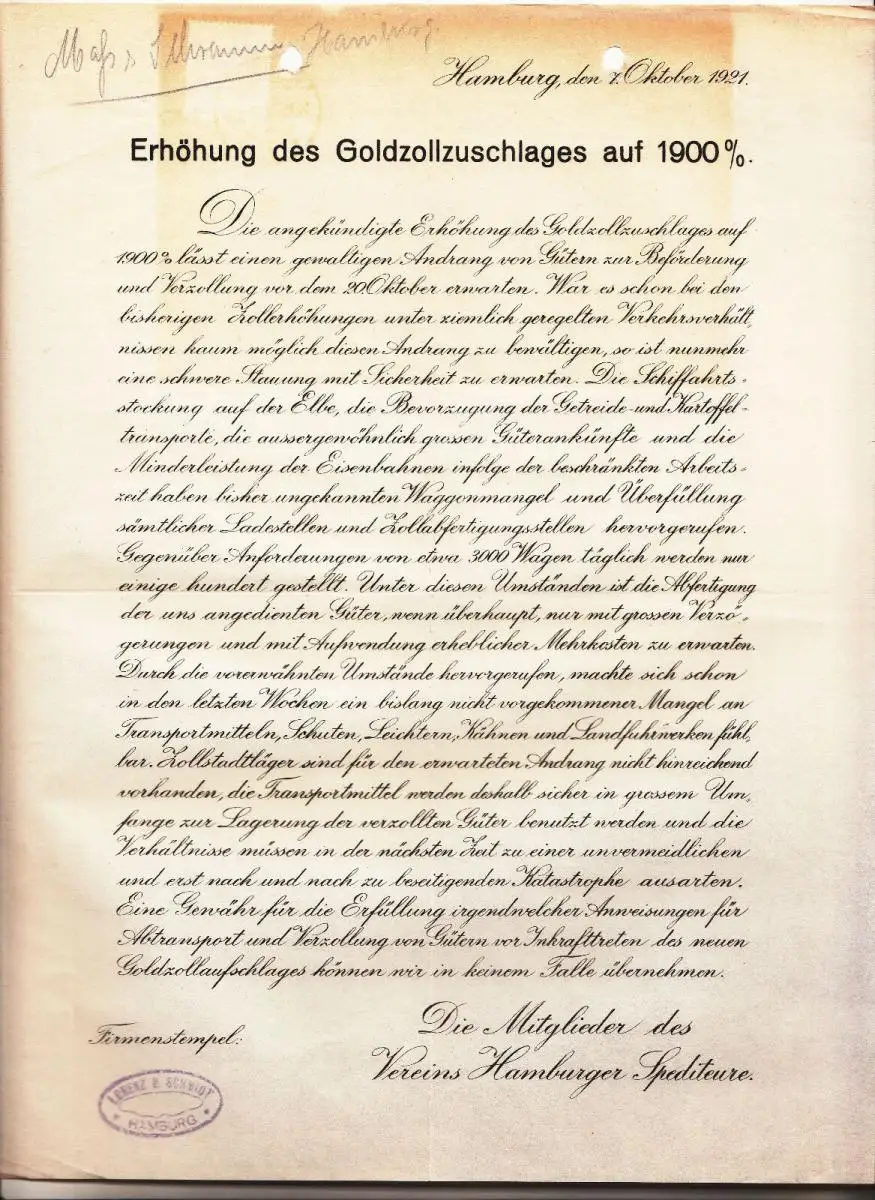 Hamburg
Hamburg, den 7. Oktober 1921.
Erhöhung des Goldzollzuschlages auf 1900%.
Die angekündigte Erhöhung des Goldzollzuschlages auf
1900% lässt einen gewaltigen Andrang von Gütern zur Beförderung
und Verzollung vor dem 20.Oktober erwarten. War es schon bei den
bisherigen Zollerhöhungen unter ziemlich geregelten Verkehrsverhält-
nissen kaum möglich diesen Andrang zu bewältigen, so ist nunmehr
eine schwere Stauung mit Sicherheit zu erwarten. Die Schiffahrts-
stockung auf der Elbe, die Bevorzugung der Getreide- und Kartoffel-
transporte, die aussergewöhnlich grossen Güterankünfte und die
Minderleistung der Eisenbahnen infolge der beschränkten Arbeits-
zeit haben bisher ungekannten Waggonmangel und Überfüllung
sämtlicher Ladestellen und Zollabfertigungsstellen hervorgerufen.
Gegenüber Anforderungen von etwa 3000 Wagen täglich werden nur
einige hundert gestellt. Unter diesen Umständen ist die Abfertigung
der uns angedienten Güter, wenn überhaupt, nur mit grossen Verzö-
gerungen und mit Aufwendung erheblicher Mehrkosten zu erwarten.
Durch die vorerwähnten Umstände hervorgerufen, machte sich schon
in den letzten Wochen ein bislang nicht vorgekommener Mangel an
Transportmitteln, Schuten, Leichtern, Kähnen und Landfuhrwerken fühl-
bar. Zollstadtläger sind für den erwarteten Andrang nicht hinreichend
vorhanden, die Transportmittel werden deshalb sicher in grossem Um-
fange zur Lagerung der verzollten Güter benutzt werden und die
Verhältnisse müssen in der nächsten Zeit zu einer unvermeidlichen
und erst nach und nach zu beseitigenden Katastrophe ausarten.
Eine Gewähr für die Erfüllung irgendwelcher Anweisungen für
Abtransport und Verzollung von Gütern vor Inkrafttreten des neuen
Goldzollaufschlages können wir in keinem Falle übernehmen.
Die Mitglieder des
Vereins Hamburger Spediteure.
Firmenstempel:
LORENZ & SCHMIDT
HAMBURG